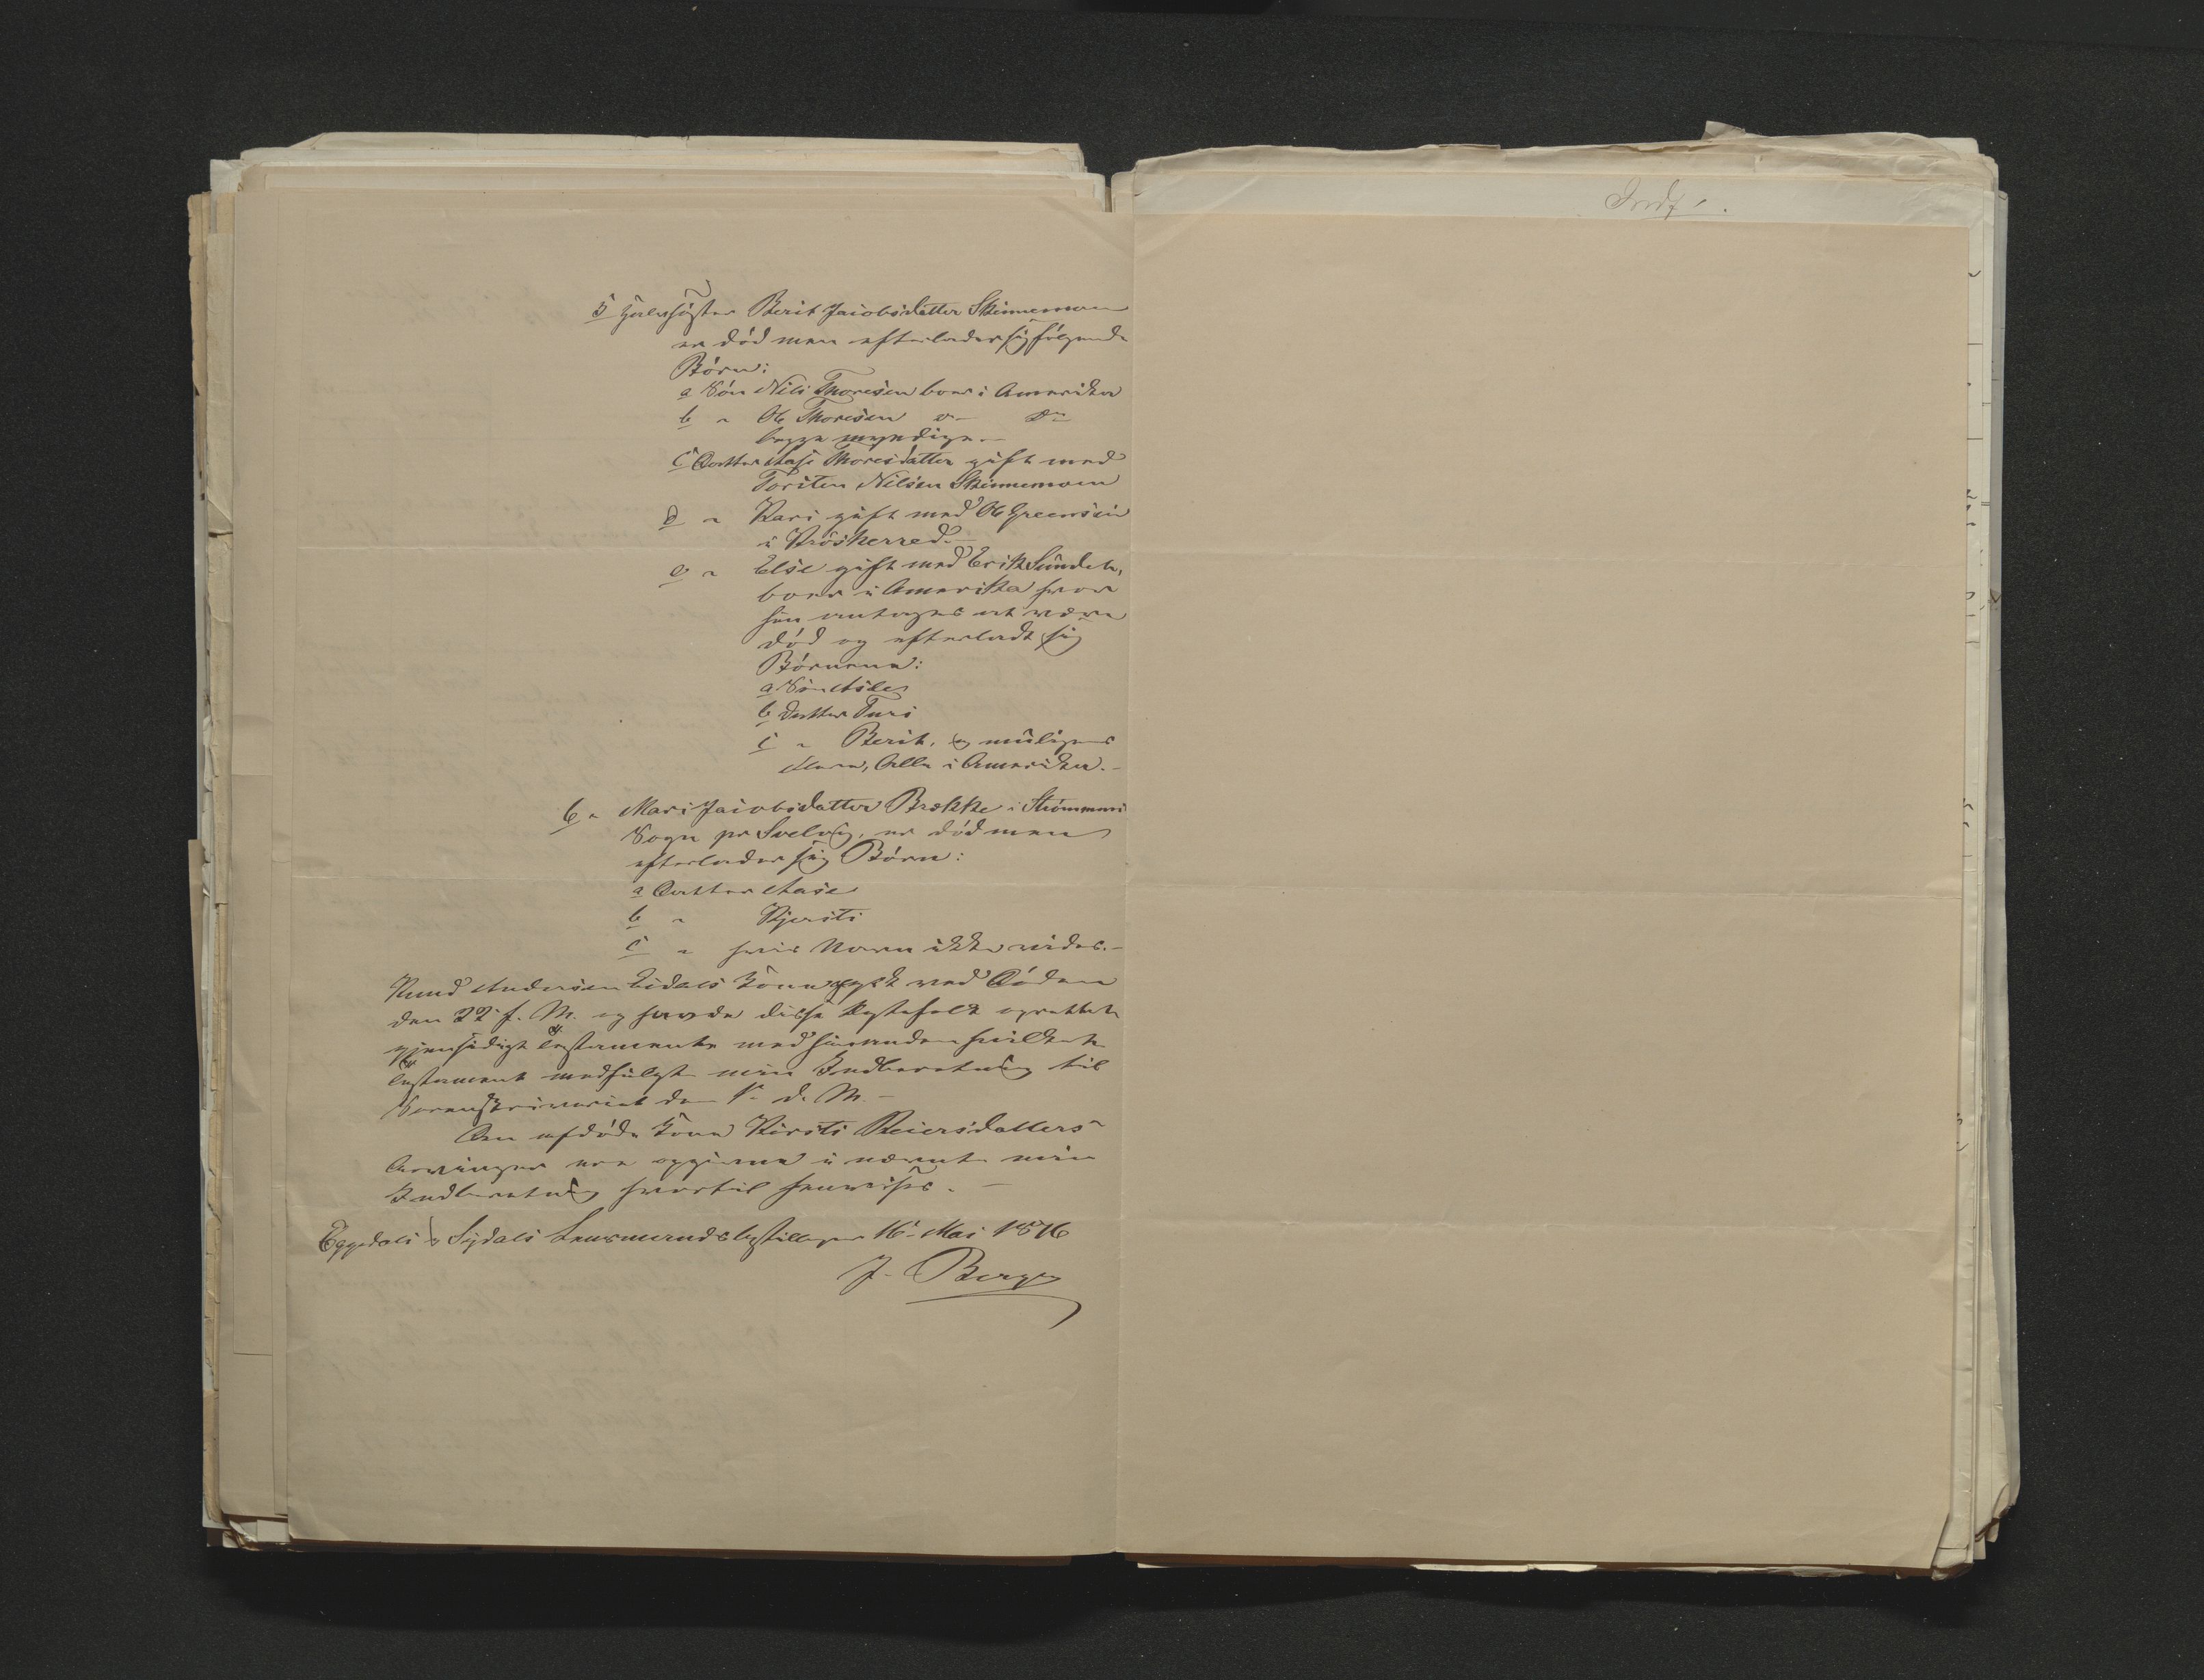 5 Halvsøster Berit Jacobsdatter Skinnemoen
er død men efterlader sig følgende
Børn:
a Søn Nils Thoresen boer i Amerika
b " Ole Thoresen do do
begge myndige.
c Datter Aase Thoresdatter gift med
Torsten Nilsen Skinnemoen
d " Kari gift med Ole Greensen
i Krøsherred.
e " Else gift med Erik Sundet,
boer i Amerika hvor
hun antages at være
død og efterladt sig
Børnene:
a Søn Asle
b Datter Turi
c " Berit, og muligens
flere, Alle i Amerika.
6 " Mari Jacobsdatter Brække i Strømmens
Sogn pr Svelvig, er død men
efterlader sig Børn:
a Datter Aase
b " Kjersti
c " hvis Navn ikke vides.
Knud Andersen Eidals Kone afgik ved Døden
den 22 f. M. og havde disse Ægtefolk oprettet
gjensidigt Testamente med hinanden hvilket
Testament medfulgte min Indberetning til
Sorenskriveriet den 1. d. M.
Den afdøde Kone Kirsti Reiersdatters
Arvinger ere opgivne i nævnte min
Indberetning hvortil henvises.
Eggedals & Sigdals Lensmandsbestillinger 16 Mai 1876
J. Berg
Indf 1.